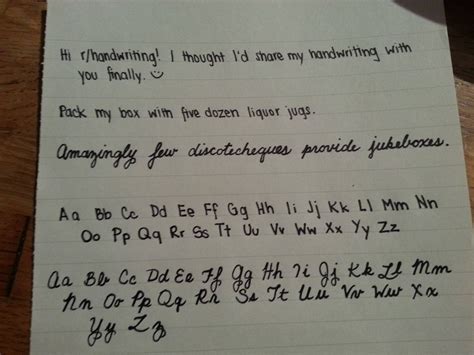 Hi r/handwriting! I thought I'd share my handwriting with
you finally. :)
Pack my box with five dozen liquor jugs.
Amazingly few discotecheques provide jukeboxes.
Aa Bb Cc Dd Ee Ff Gg Hh Ii Jj Kk Ll Mm Nn
Oo Pp Qq Rr Ss Tt Uu Vv Ww Xx Yy Zz
Aa Bb Cc Dd Ee Ff Gg Hh Ii Jj Kk Ll Mm
Nn Oo Pp Qq Rr Ss Tt Uu Vv Ww Xx
Yy Zz